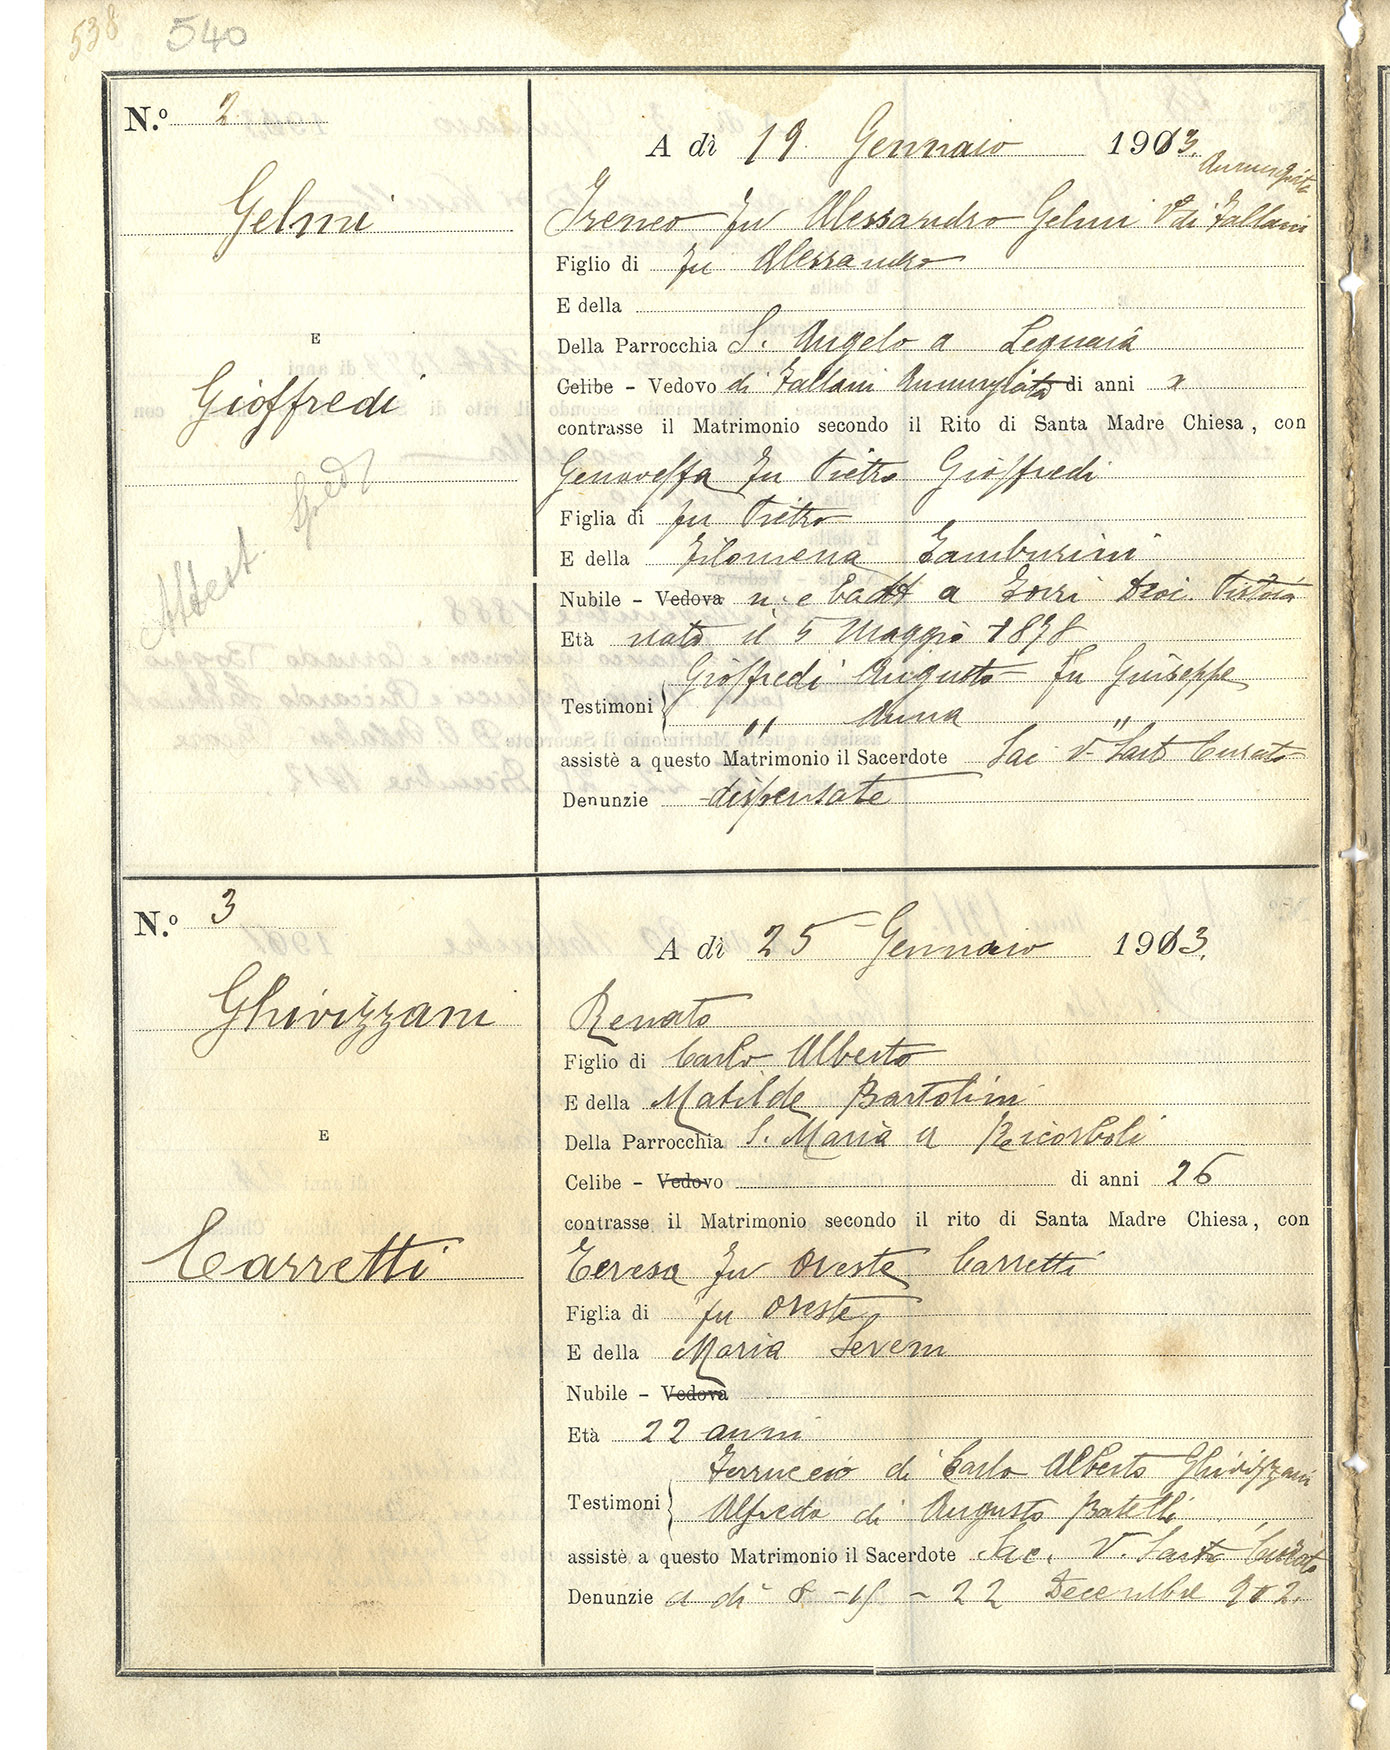 538 540
N.o 2
A dì 19 Gennaio 1903.
Annunziata
Gelmi
Ireneo fu Alessandro Gelmi Vo di Fallani
Figlio di fu Alessandro
E della
E
Della Parrocchia S. Angelo a Legnaia
Gioffredi
Celibe - Vedovo di Fallani Annunziata di anni x
contrasse il Matrimonio secondo il Rito di Santa Madre Chiesa, con
Genoveffa fu Pietro Gioffredi
Figlia di fu Pietro
Attest. Sped
E della Filomena Tamburini
Nubile - Vedova n. e batt a Torri Dioc. Pistoia
Età nata il 5 Maggio 1878
Testimoni { Gioffredi Augusto fu Giuseppe
" Anna "
assistè a questo Matrimonio il Sacerdote Sac V. Sarti Curato
Denunzie dispensate
N.o 3
A dì 25 Gennaio 1903.
Ghivizzani
Renato
Figlio di Carlo Alberto
E della Matilde Bartolini
E
Della Parrocchia S. Maria a Ricorboli
Celibe - Vedovo di anni 26
contrasse il Matrimonio secondo il rito di Santa Madre Chiesa, con
Carretti
Teresa fu Oreste Carretti
Figlia di fu Oreste
E della Maria Severi
Nubile - Vedova
Età 22 anni
Testimoni { Ferruccio di Carlo Alberto Ghivizzani
Alfredo di Augusto Batelli
assistè a questo Matrimonio il Sacerdote Sac. V. Sarti Curato
Denunzie a dì 8 - 15 - 22 Decembre 902.